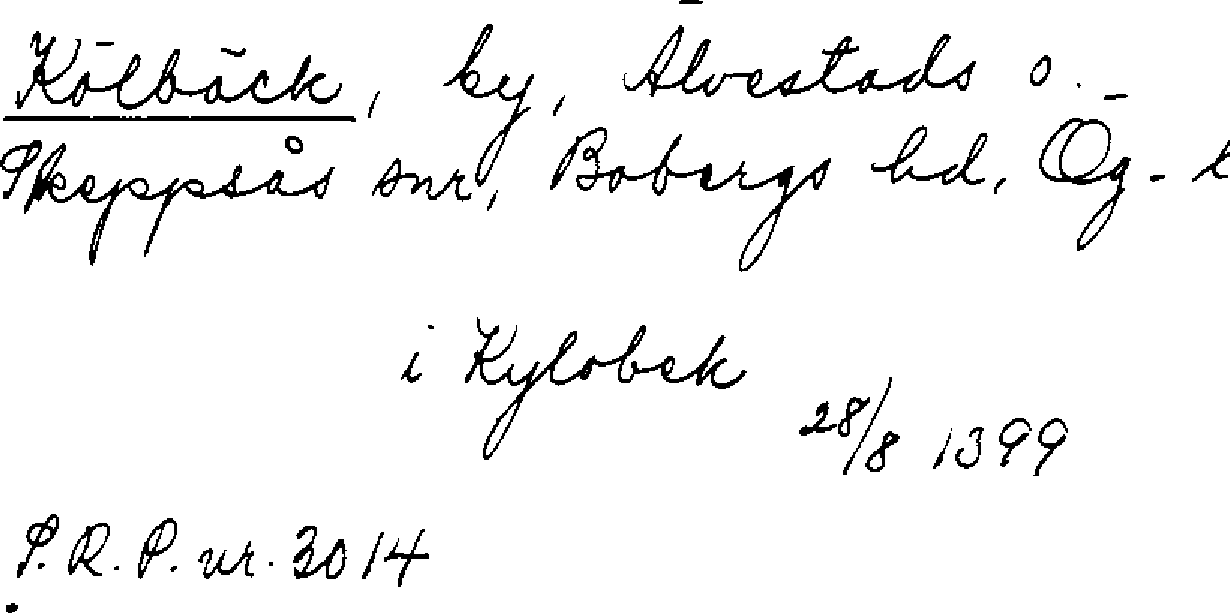 Kölbäck, by, Älvestads o.
Skeppsås snr, Bobergs hd, Ög. l
i Kylobek
28/8 1399
S.R.P. nr. 3014